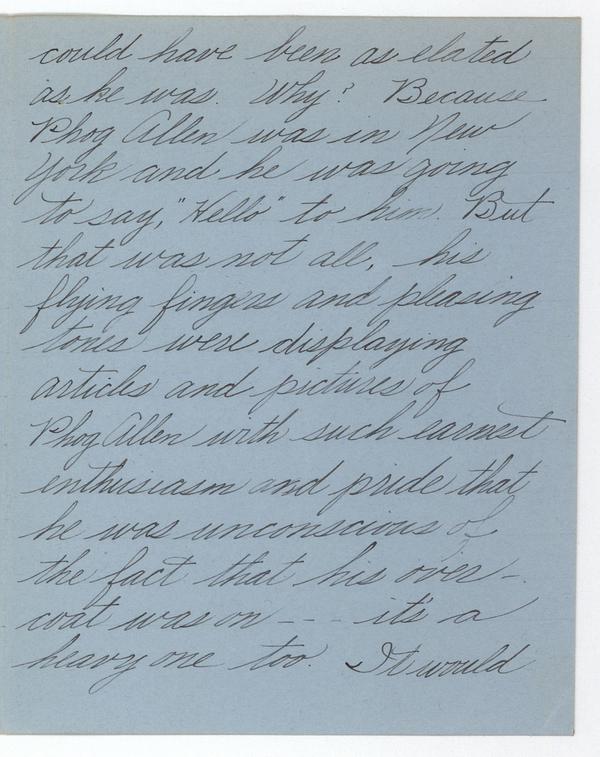 could have been as elated
as he was. Why? Because
Phog Allen was in New
York and he was going
to say, "Hello" to him. But
that was not all, his
flying fingers and pleasing
tones were displaying
articles and pictures of
Phog Allen with such earnest
enthusiasm and pride that
he was unconscious of
the fact that his over-
coat was on --- it's a
heavy one too. It would